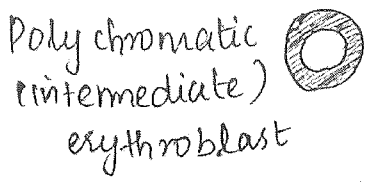 Poly chromatic
(intermediate)
erythroblast